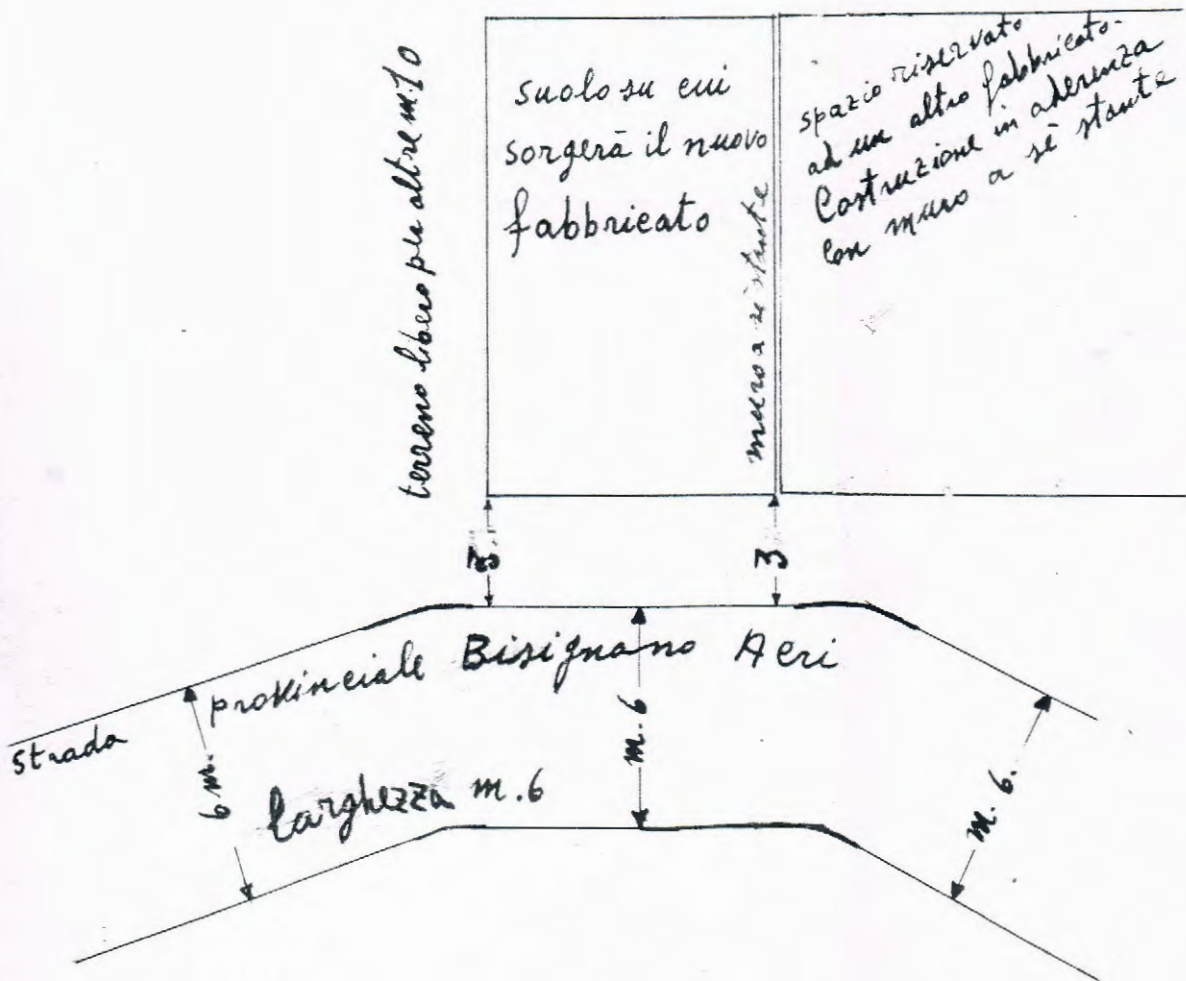 terreno libero per altre m. 10
suolo su cui
sorgerà il nuovo
fabbricato
muro a sè stante
spazio riservato
ad un altro fabbricato-
Costruzione in aderenza
con muro a sè stante
3.
3
strada provinciale Bisignano Acri
6 m.
larghezza m. 6
m. 6
m. 6.